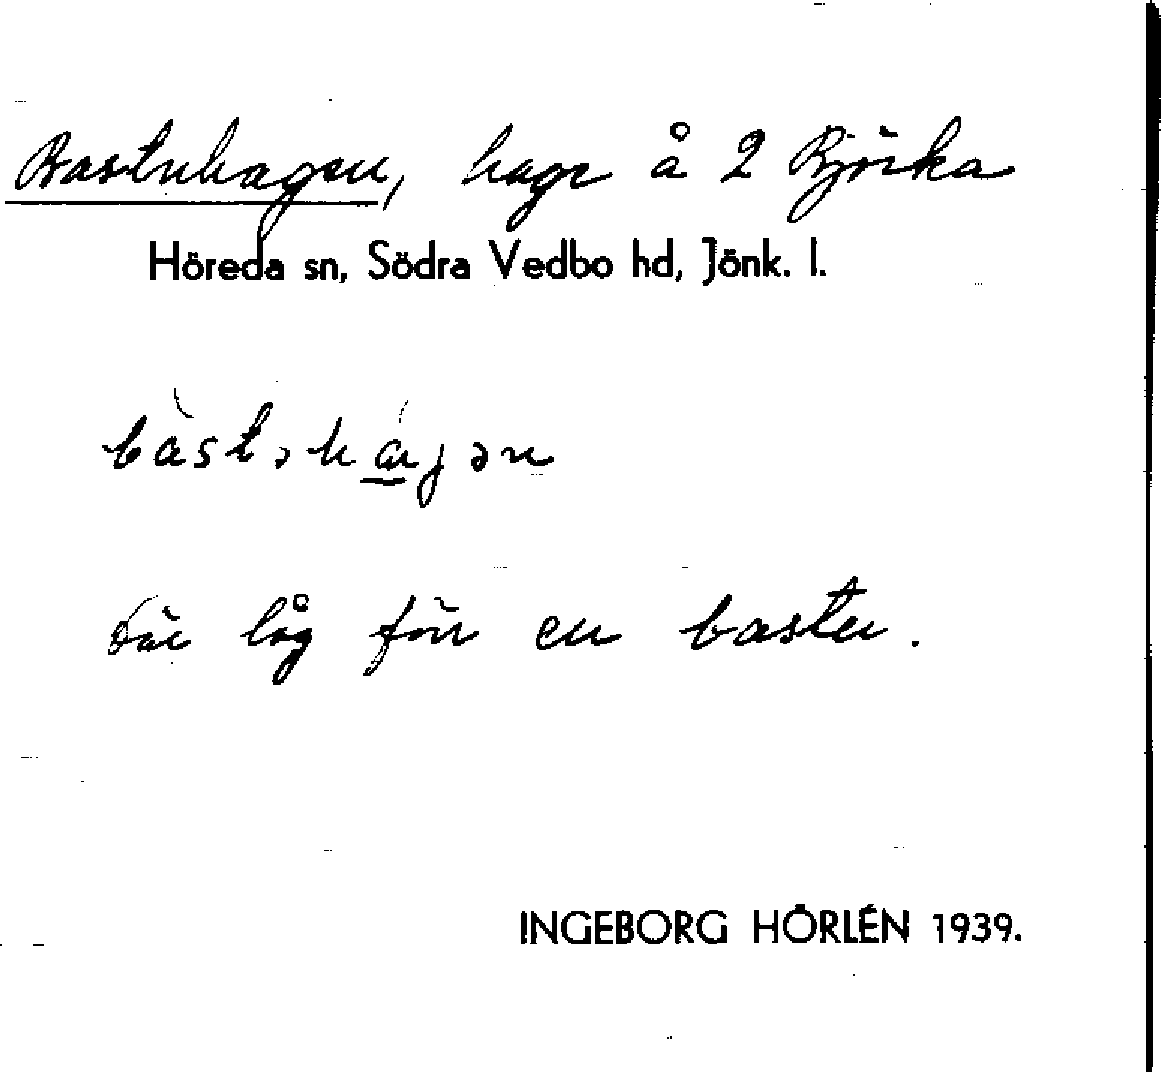 Bastuhagen, hage å 2 Björka
Höreda sn, Södra Vedbo hd, Jönk. l.
bàstəhá̱gən
Där låg förr en bastu.
INGEBORG HÖRLÉN 1939.